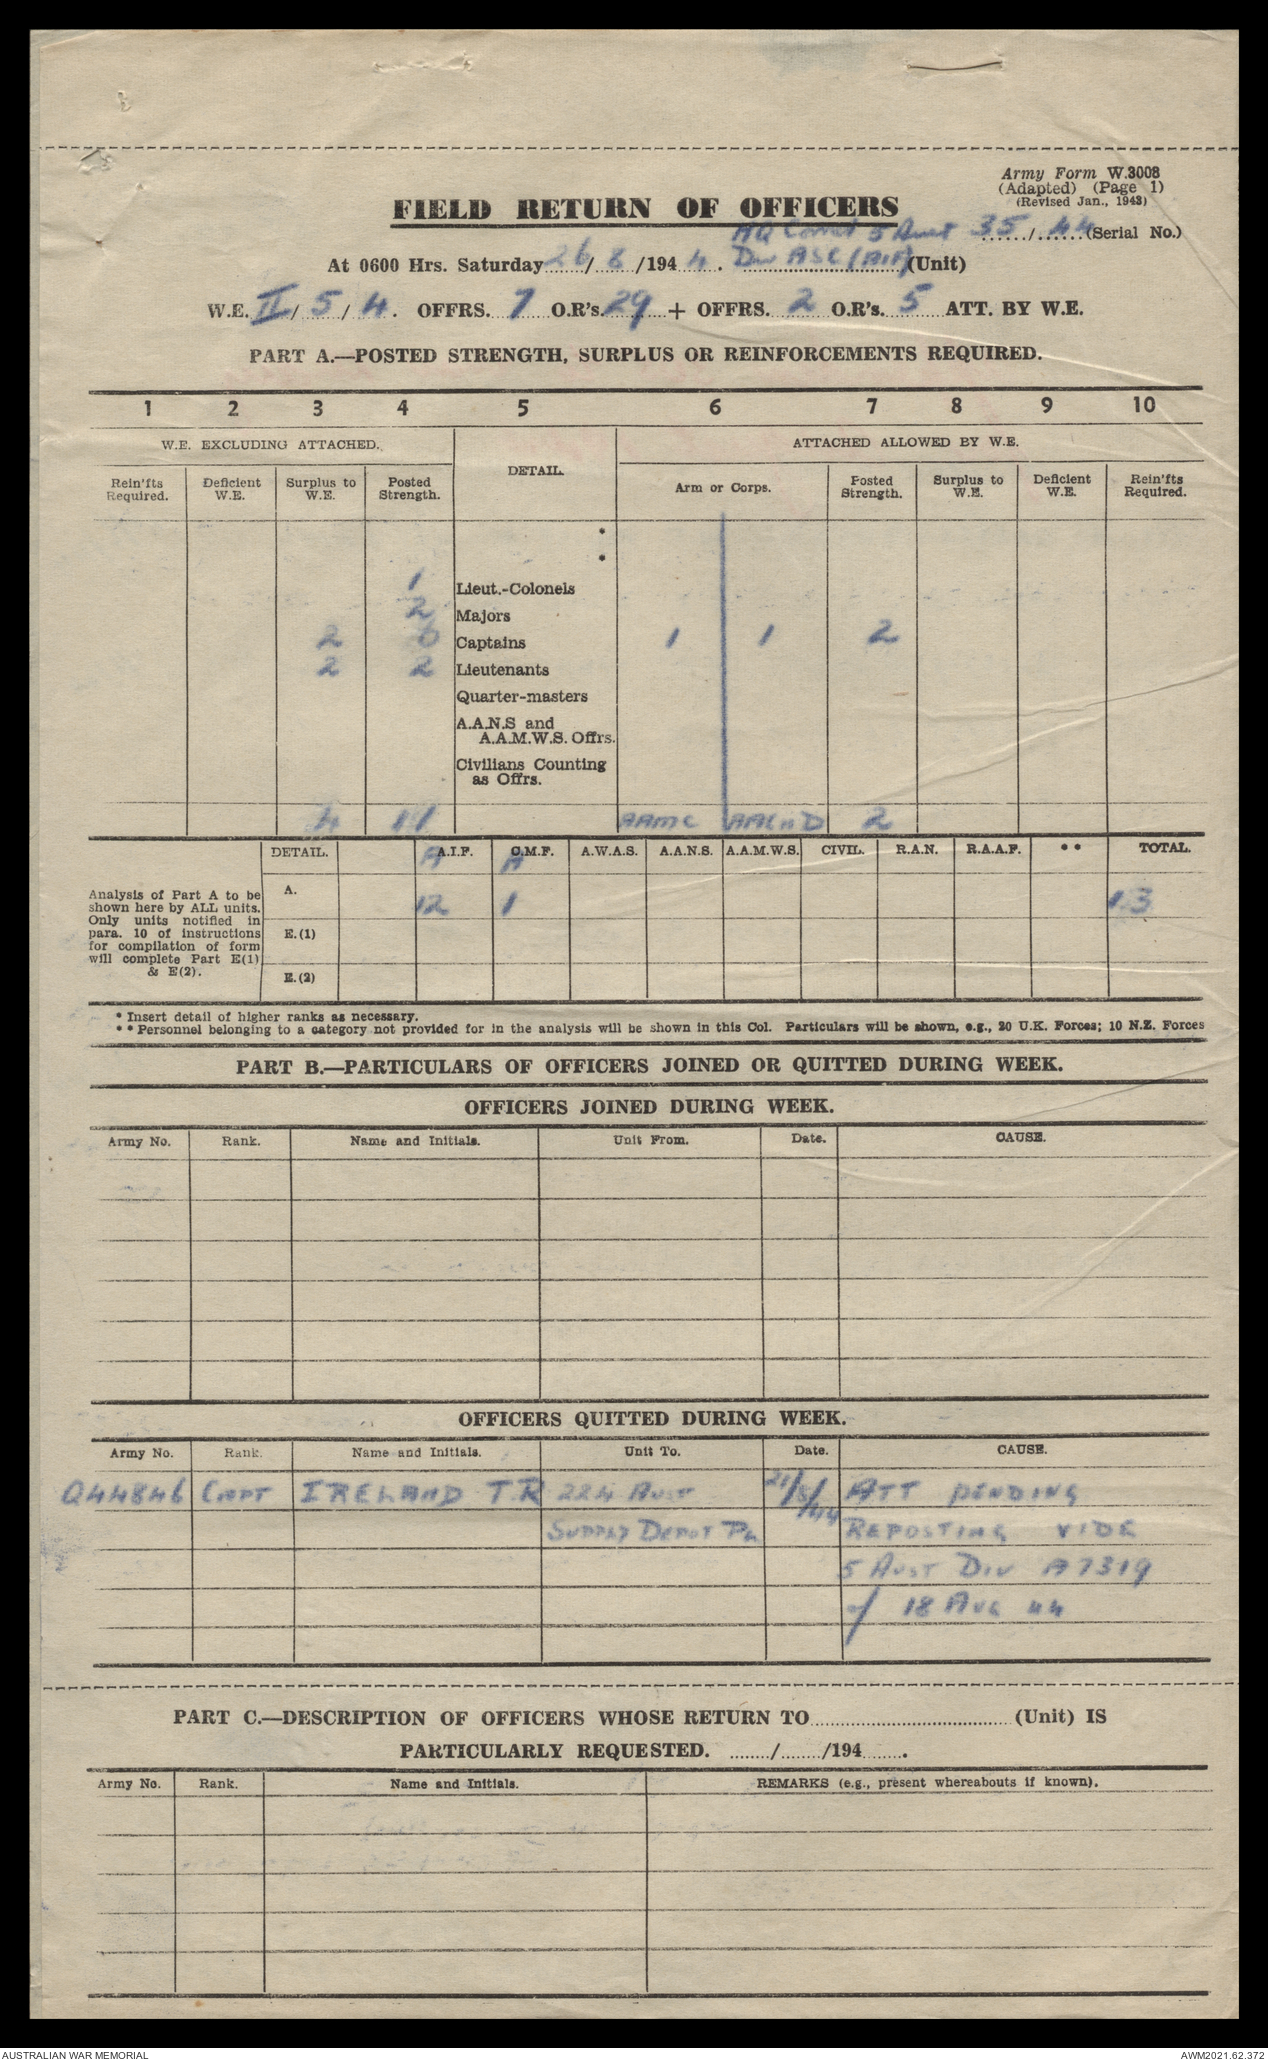 Army Form W.3008
(Adapted) (Page 1)
(Revised Jan., 1943)
FIELD RETURN OF OFFICERS
HQ Comd 5 Aust 35/44 (Serial No.)
At 0600 Hrs. Saturday 26/8/1944. Div ASC (AIF) (Unit)
W.E. II/5/4. OFFRS. 7 O.R's. 29 + OFFRS. 2 O.R's. 5 ATT. BY W.E.
PART A.—POSTED STRENGTH, SURPLUS OR REINFORCEMENTS REQUIRED.
1 2 3 4 5 6 7 8 9 10
W.E. EXCLUDING ATTACHED. DETAIL. ATTACHED ALLOWED BY W.E.
Rein'fts Required. Deficient W.E. Surplus to W.E. Posted Strength. Arm or Corps. Posted Strength. Surplus to W.E. Deficient W.E. Rein'fts Required.
*
*
1 Lieut.-Colonels
2 Majors
2 6 Captains 1 1 2
2 2 Lieutenants
Quarter-masters
A.A.N.S and
A.A.M.W.S. Offrs.
Civilians Counting
as Offrs.
4 11 AAMC AAChD 2
DETAIL. A.I.F. C.M.F. A.W.A.S. A.A.N.S. A.A.M.W.S. CIVIL. R.A.N. R.A.A.F. ** TOTAL.
A A
Analysis of Part A to be
shown here by ALL units.
Only units notified in
para. 10 of instructions
for compilation of form
will complete Part E(1)
& E(2).
A. 12 1 13
E.(1)
E.(2)
* Insert detail of higher ranks as necessary.
** Personnel belonging to a category not provided for in the analysis will be shown in this Col. Particulars will be shown, e.g., 20 U.K. Forces; 10 N.Z. Forces
PART B.—PARTICULARS OF OFFICERS JOINED OR QUITTED DURING WEEK.
OFFICERS JOINED DURING WEEK.
Army No. Rank. Name and Initials. Unit From. Date. CAUSE.
OFFICERS QUITTED DURING WEEK.
Army No. Rank. Name and Initials. Unit To. Date. CAUSE.
Q44846 CAPT IRELAND T.R 224 AUST 21/8/44 ATT PENDING
SUPPLY DEPOT PL REPOSTING VIDE
5 AUST DIV A7319
of 18 AUG 44
PART C.—DESCRIPTION OF OFFICERS WHOSE RETURN TO (Unit) IS
PARTICULARLY REQUESTED. / /194 .
Army No. Rank. Name and Initials. REMARKS (e.g., present whereabouts if known).
AUSTRALIAN WAR MEMORIAL
AWM2021.62.372